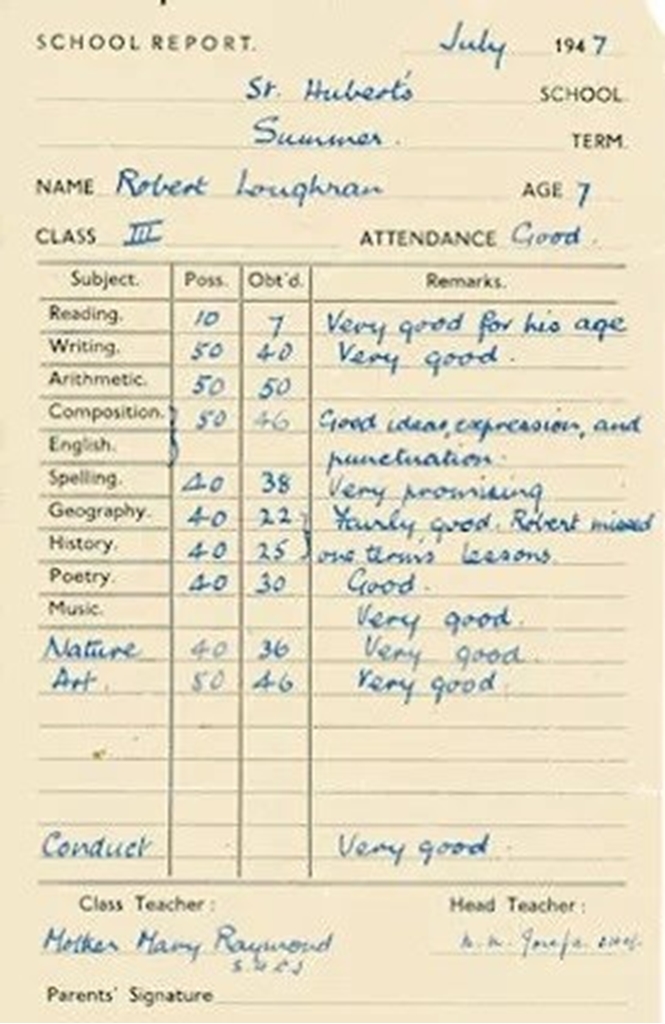 SCHOOL REPORT. July 1947
St. Hubert's SCHOOL
Summer. TERM.
NAME Robert Loughran AGE 7
CLASS III ATTENDANCE Good.
Subject. Poss. Obt'd. Remarks.
Reading. 10 7 Very good for his age
Writing. 50 40 Very good.
Arithmetic. 50 50
Composition. 50 46 Good ideas, expression, and
English. punctuation.
Spelling. 40 38 Very promising
Geography. 40 22 Fairly good. Robert missed
History. 40 25 one terms' lessons.
Poetry. 40 30 Good.
Music. Very good.
Nature 40 36 Very good.
Art. 50 46 Very good.
Conduct Very good.
Class Teacher: Head Teacher:
Mother Mary Raymond
Parents' Signature